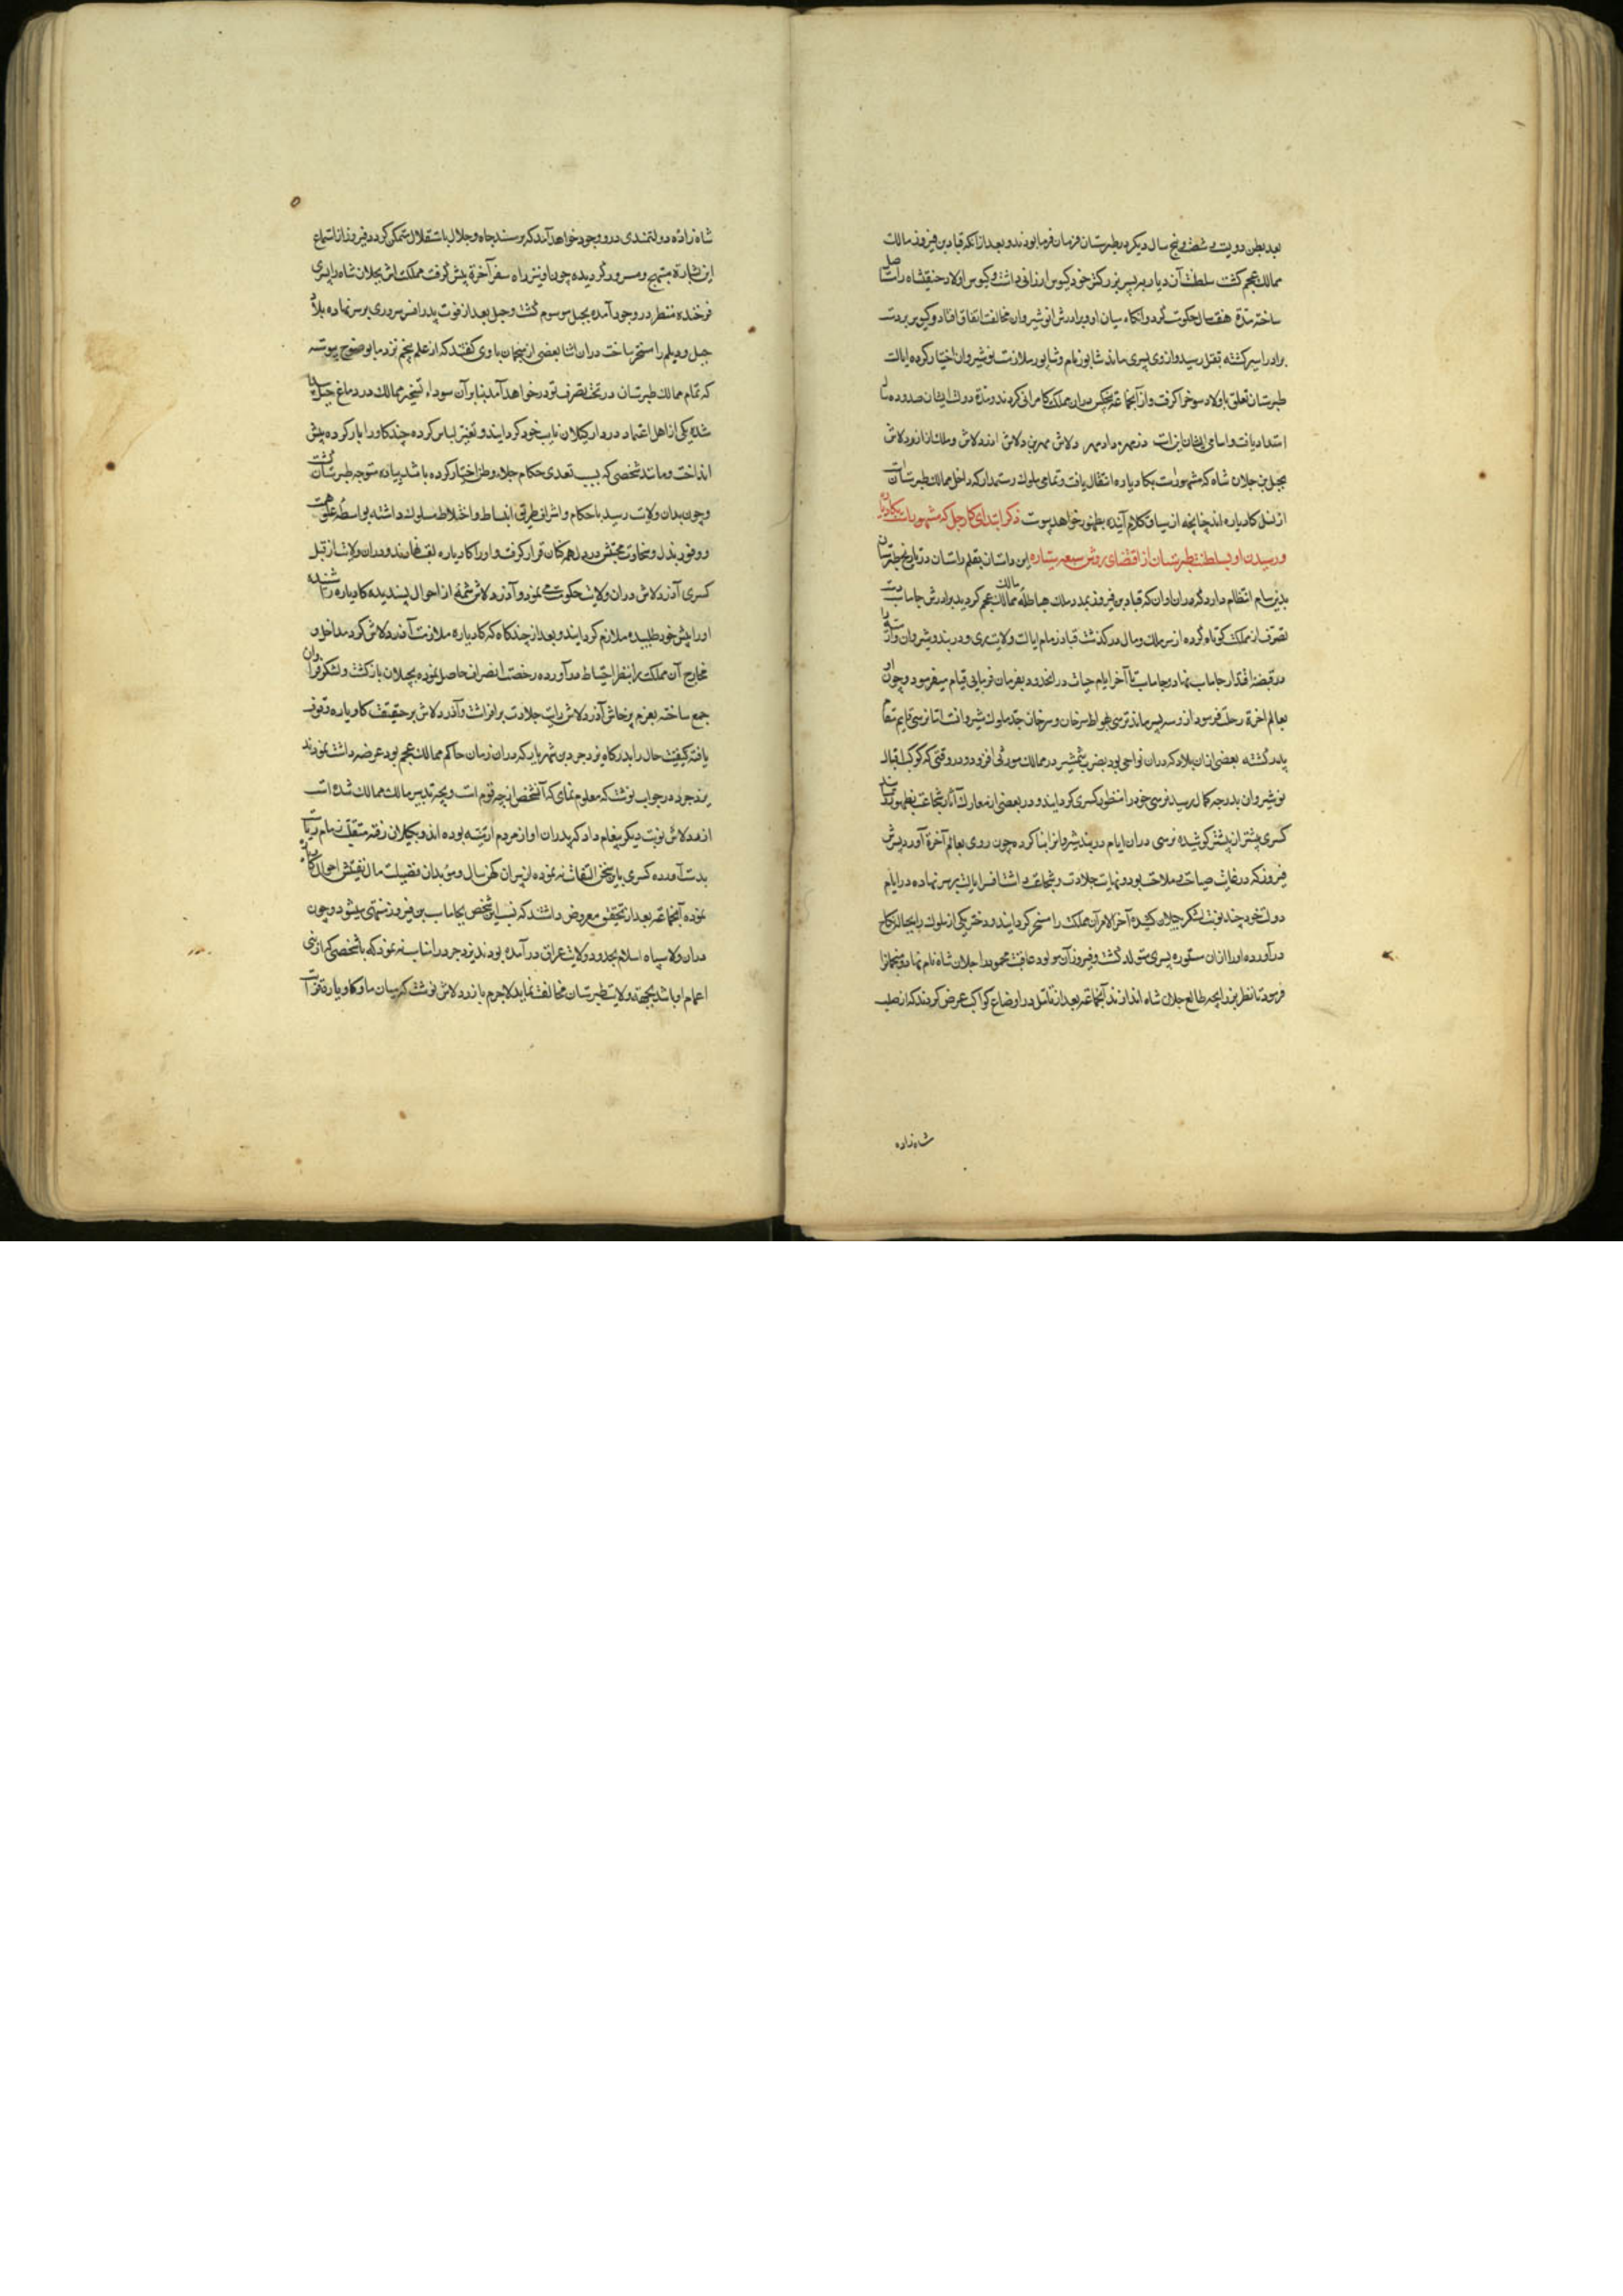 بعد بطن دویست و شصت و پنج سال دیگر در طبرستان فرمان فرما بودند و بعد از آنکه قباد بن فیروز مالک
ممالک عجم کشت سلطنت آن دیار به پسر بزرکتر خود کیوس ارزانی داشت و کیوس اولاد جنفشاه را
ساخته مدة هفت سال حکومت کرد و انکاه میان او و برادرش انوشیروان مخالفت اتفاق افتاد و کیوس بر دست
برادر اسیر کشته بقتل رسید و ازوی پسری ماند شاپور نام و شاپور ملازمت نوشیروان اختیار کرده ایالت
طبرستان تعلق باولاد سوخرا کرفت و از آنجماعة پنج کس دران مملکت کامرانی کردند و مدة دولت ایشان صد و ده سال
امتداد یافت و اسامی ایشان اینست زرمهر داد مهر ولاش مهر بن ولاش اذر ولاش و ملک از اذر ولاش
بجیل بن جیلان شاه که مشهورست بکاو باره انتقال یافت و تمامی ملوک رستمدار که داخل ممالک طبرستان است
از نسل کاو باره اند چنانچه از سیاق کلام آینده بظهور خواهد پیوست ذکر ابتدای کار جیل که مشهورست بکاو باره
و رسیدن او بسلطنت طبرستان از اقتضای روش سبعه سیاره این داستان بقلم راستان در تاریخ طبرستان
بدین سام انتظام دارد که در ان اوان که قباد بن فیروز بمدد ملک هیاطله مالک ممالک عجم کردید برادرش جاماسب دست
تصرف از مملکت کوتاه کرده از سر ملک و مال در کذشت قباد زمام ایالت ولایت ری و دربند و شیروان و
در قبضه اقتدار جاماسب نهاد و جاماسب تا آخر ایام حیات در انحدود بفرمان فرمایی قیام میفرمود و چون او
بعالم اخرة رحلت فرمود از و سه پسر ماند نرسی بهواط سرخان و سرخان جد ملوک شیروانست اما نرسی قایم مقام
پدر کشته بعضی ازان بلاد که دران نواحی بود بضرب شمشیر در ممالک موروثی افزود و در وقتی که کوکب اقبال
نوشیروان بدرجه کمال رسید نرسی خود را منظور کسری کردانید و در بعضی از معارک آثار شجاعت بظهور
کسری پیشتر از پیشتر کوشیده نرسی دران ایام دربند شیروانرا بنا کرده چون روی بعالم آخرة آورد پسرش
فیروز که در غایت صباحت و ملاحت بود و نهایت جلادت و شجاعت داشت افسر ایالت بر سر نهاده در ایام
دولت خود چند نوبت لشکر بجیلان کشیده آخر الامر آن مملکت را مسخر کردانید و دختر یکی از ملوک را بحباله نکاح
درآورده او را ازان مستوره پسری متولد کشت و فیروز آن مولود عاقبت محمود را جیلان شاه نام نهاد و منجمانرا
فرمود تا نظر بزایجه طالع جیلان شاه اندازند آنجماعة بعد از تامل در اوضاع کواکب عرض کردند که از صلب
شاه زاده
شاه زاده دولتمندی در وجود خواهد آمد که بر مسند جاه و جلال باستقلال متمکن کردد فیروز از استماع
این بشارة مبتهج و مسرور کردیده چون او نیز راه سفر آخرة پیش کرفت مملکت اش بجیلان شاه را پسری
فرخنده منظر در وجود آمده بجیل موسوم کشت و جیل بعد از فوت پدر افسر سروری بر سر نهاده بلاد
جیل و دیلم را مسخر ساخت دران اثنا بعضی از منجمان باوی کفتند که از علم نجوم نزد ما بوضوح پیوسته
که تمام ممالک طبرستان در تحت تصرف تو در خواهد آمد بنا بر آن سوداء تسخیر ممالک در دماغ جیل پیدا
شده یکی از اهل اعتماد در دار کیلان نایب خود کردانید و تغییر لباس کرده چند کاو را بار کرده پیش
انداخت و مانند شخصی که بسبب تعدی حکام جلاء وطن اختیار کرده باشد پیاده متوجه طبرستان کشت
و چون بدان ولایت رسید با حکام و اشراف طریق انبساط و اختلاط مسلوک داشته بواسطه علو همت
و وفور بذل و سخاوت محبتش در دل همکنان قرار کرفت و او را کاو باره لقب نهادند و دران ولا شاه از قبل
کسری آذر ولاش دران ولایت حکومت می نمود و آذر ولاش شمه از احوال پسندیده کاو باره را شنیده
او را پیش خود طلبیده ملازم کردانید و بعد از چند کاه که کاو باره ملازمت آذر ولاش کرد مداخل و
مخارج آن مملکت را بنظر احتیاط در آورده رخصت انصراف حاصل نموده بجیلان باز کشت و لشکر فراوان
جمع ساخته بعزم پرخاش آذر ولاش رایت جلادت برافراشت و آذر ولاش بر حقیقت کاو باره وقوف
یافته کیفیت حال را بدرکاه یزدجرد بن شهریار که دران زمان حاکم ممالک عجم بود عرضه داشت نمود
یزدجرد در جواب نوشت که معلوم نمای که آنشخص از چه قوم است و بچه تدبیر مالک ممالک شده است
اذر ولاش نوبت دیکر پیغام داد که پدران او از مردم ارمنیه بوده اند و بکیلان رفته بتغلب زمام ریاست
بدست آورده کسری باین سخن التفات ننموده از پیران کهن سال و موبدان فضیلت مال تفتیش احوال کاو باره
نموده آنجماعة بعد از تحقیق معروض داشتند که نسب این شخص بجاماسب بن فیروز منتهی میشود و چون
دران ولا سپاه اسلام بحدود ولایت عراق درآمده بودند یزدجرد مناسب ندید که با شخصی که از بنی
اعمام او باشد بجهة ولایت طبرستان مخالفت نماید لاجرم باذر ولاش نوشت که میان ما و کاو باره قرابت